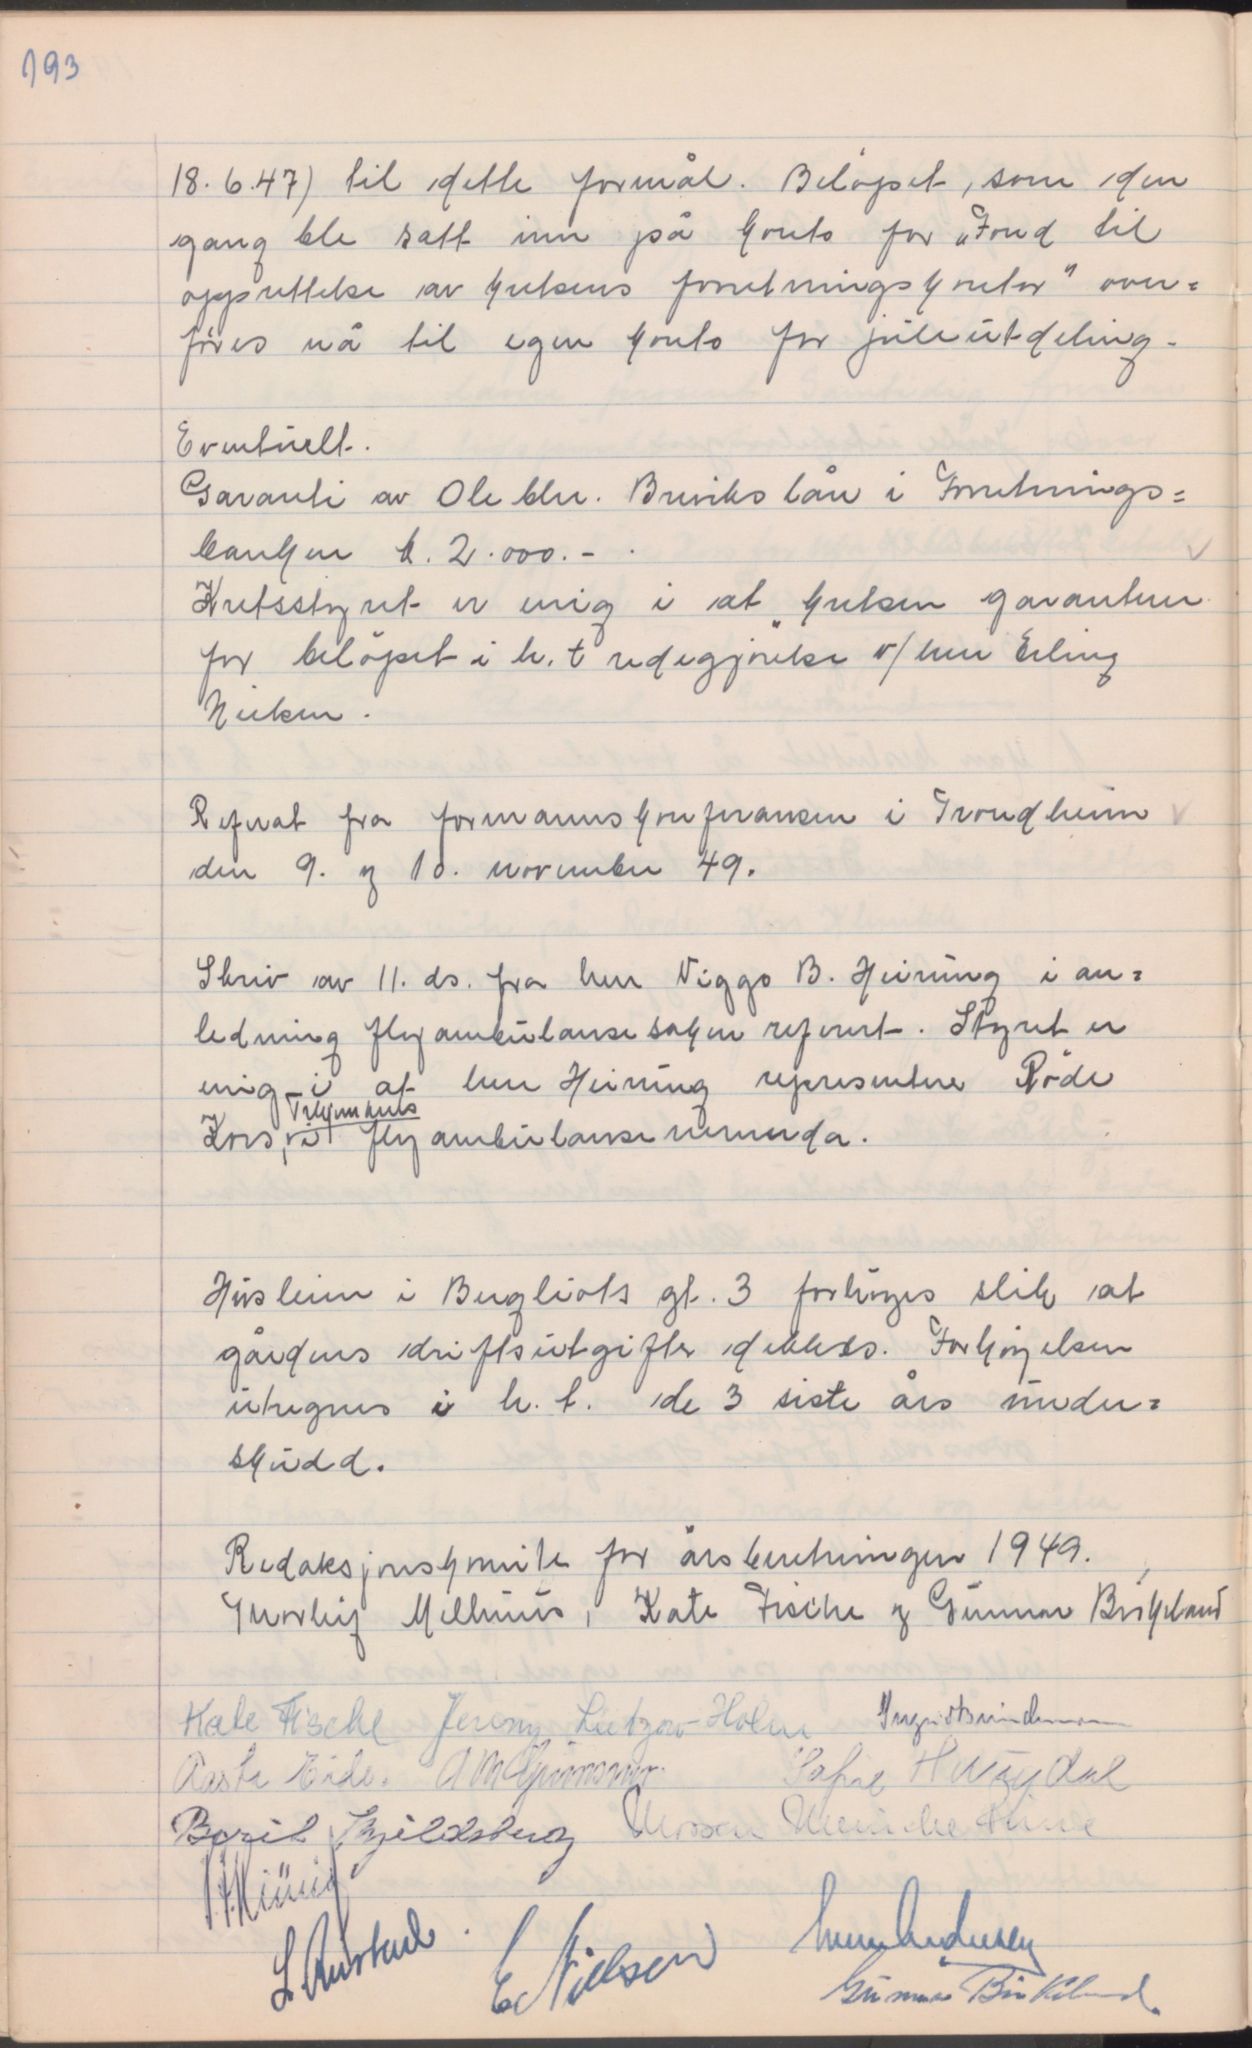 193
18.6.47) til dette formål. Beløpet, som den
gang ble satt inn på konto for „Fond til
opprettelse av kretsens forretningskontor" over=
føres nå til egen konto for juleutdeling.
Eventuelt.
Garanti av Ole Chr. Breviks lån i Forretnings=
banken k. 2.000.-.
Kretsstyret er enig i at kretsen garanterer
for beløpet i h.t redegjørelse v/herr Erling
Nielsen.
Referat fra formannskonferansen i Trondheim
den 9. og 10. november 49.
Skriv av 11. ds. fra herr Viggo B. Heiring i an=
ledning flyambulansesaken referert. Styret er
enig i at herr Heiring representerer Røde
Kors, i flyambulansenemnda.
Husleien i Bergliots gt. 3 forhøyes slik at
gårdens driftsutgifter dekkes. Forhøyelsen
utregnes i h.t. de 3 siste års under=
skudd.
Redaksjonskomite for årsberetningen 1949.
Thorleif Mellhuus, Kate Fische og Gunnar Birkeland
Kate Fische Jenny Lützow-Holm
Aasta Eide.
Boril Skjeldsberg
L. Rustad.
E. Nielsen
Gunnar Birkeland.